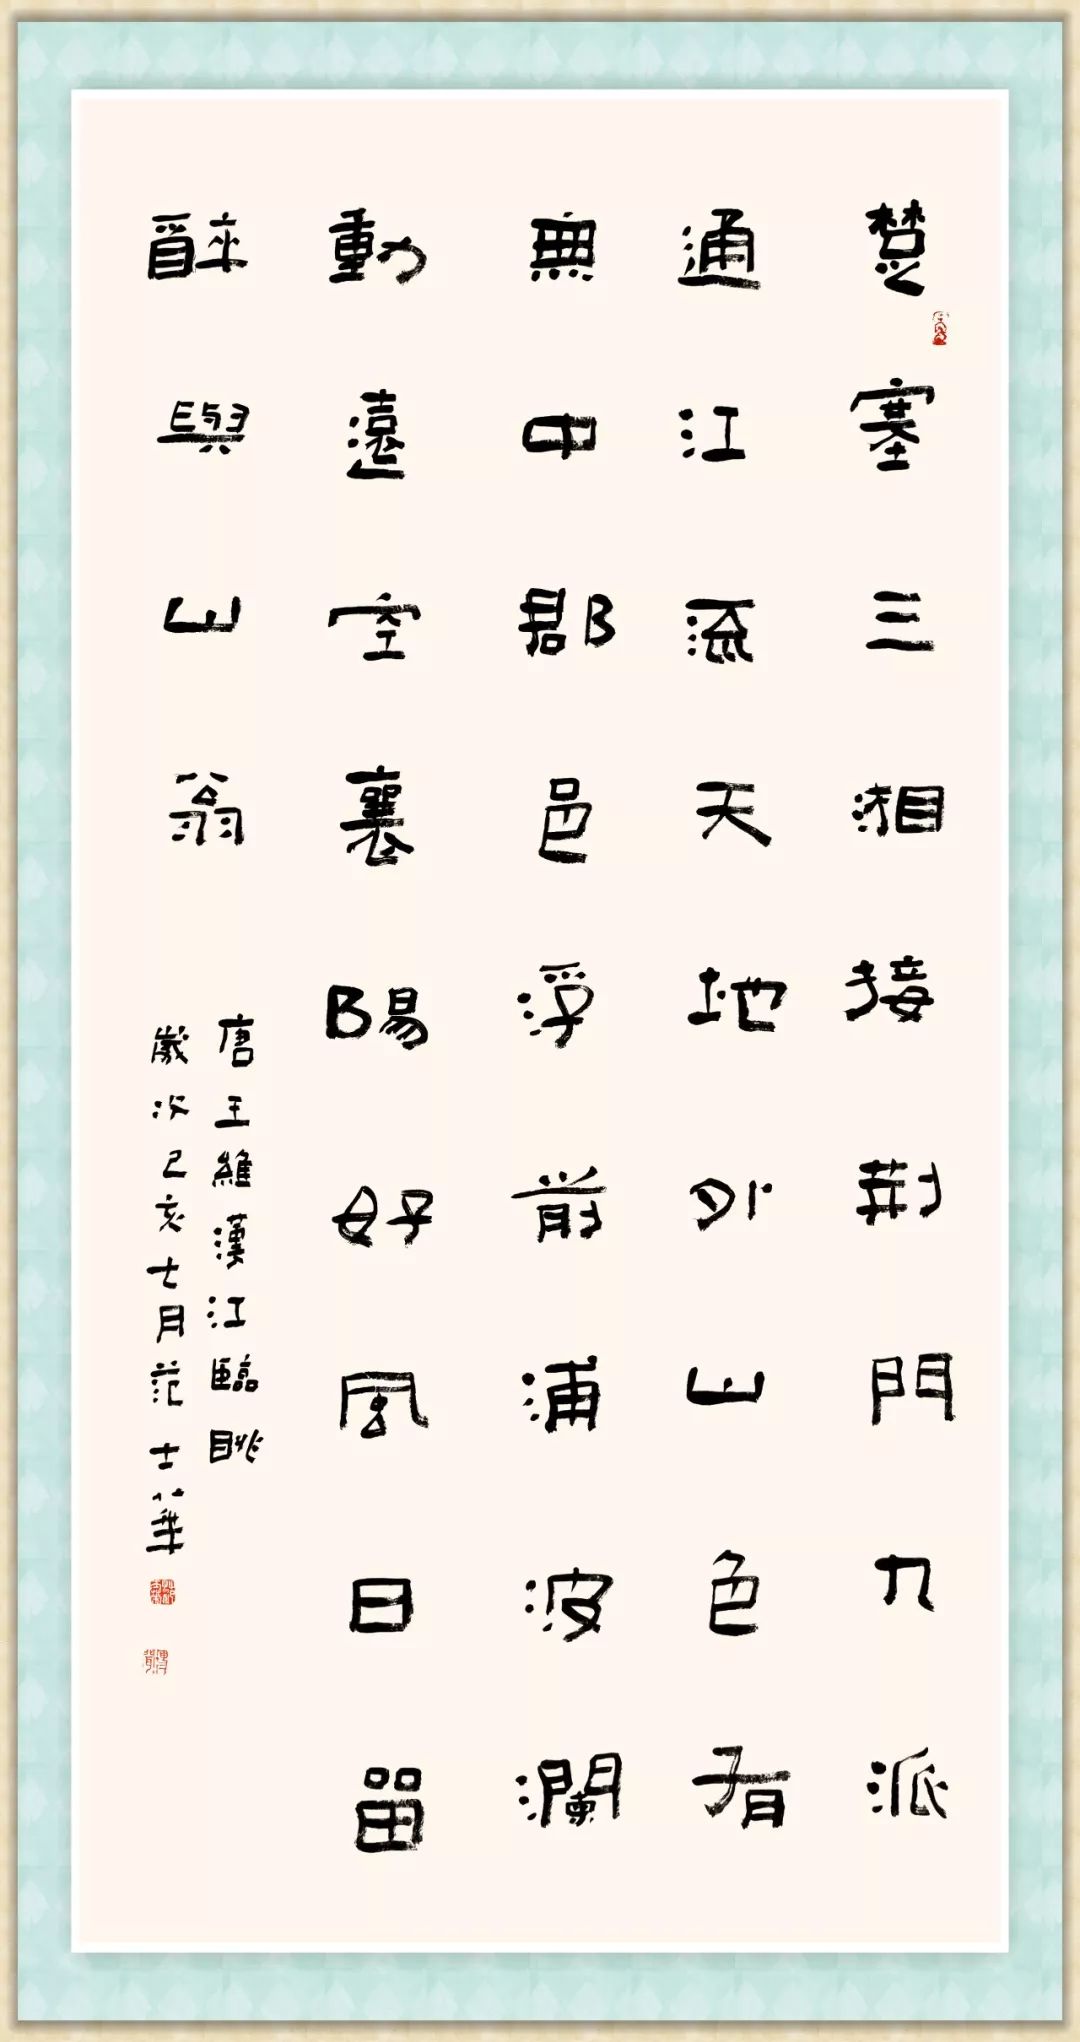 楚塞三湘接荊門九派
通江流天地外山色有
無中郡邑浮前浦波瀾
動遠空襄陽好風日留
醉與山翁
唐王維漢江臨眺
歲次己亥七月范士華